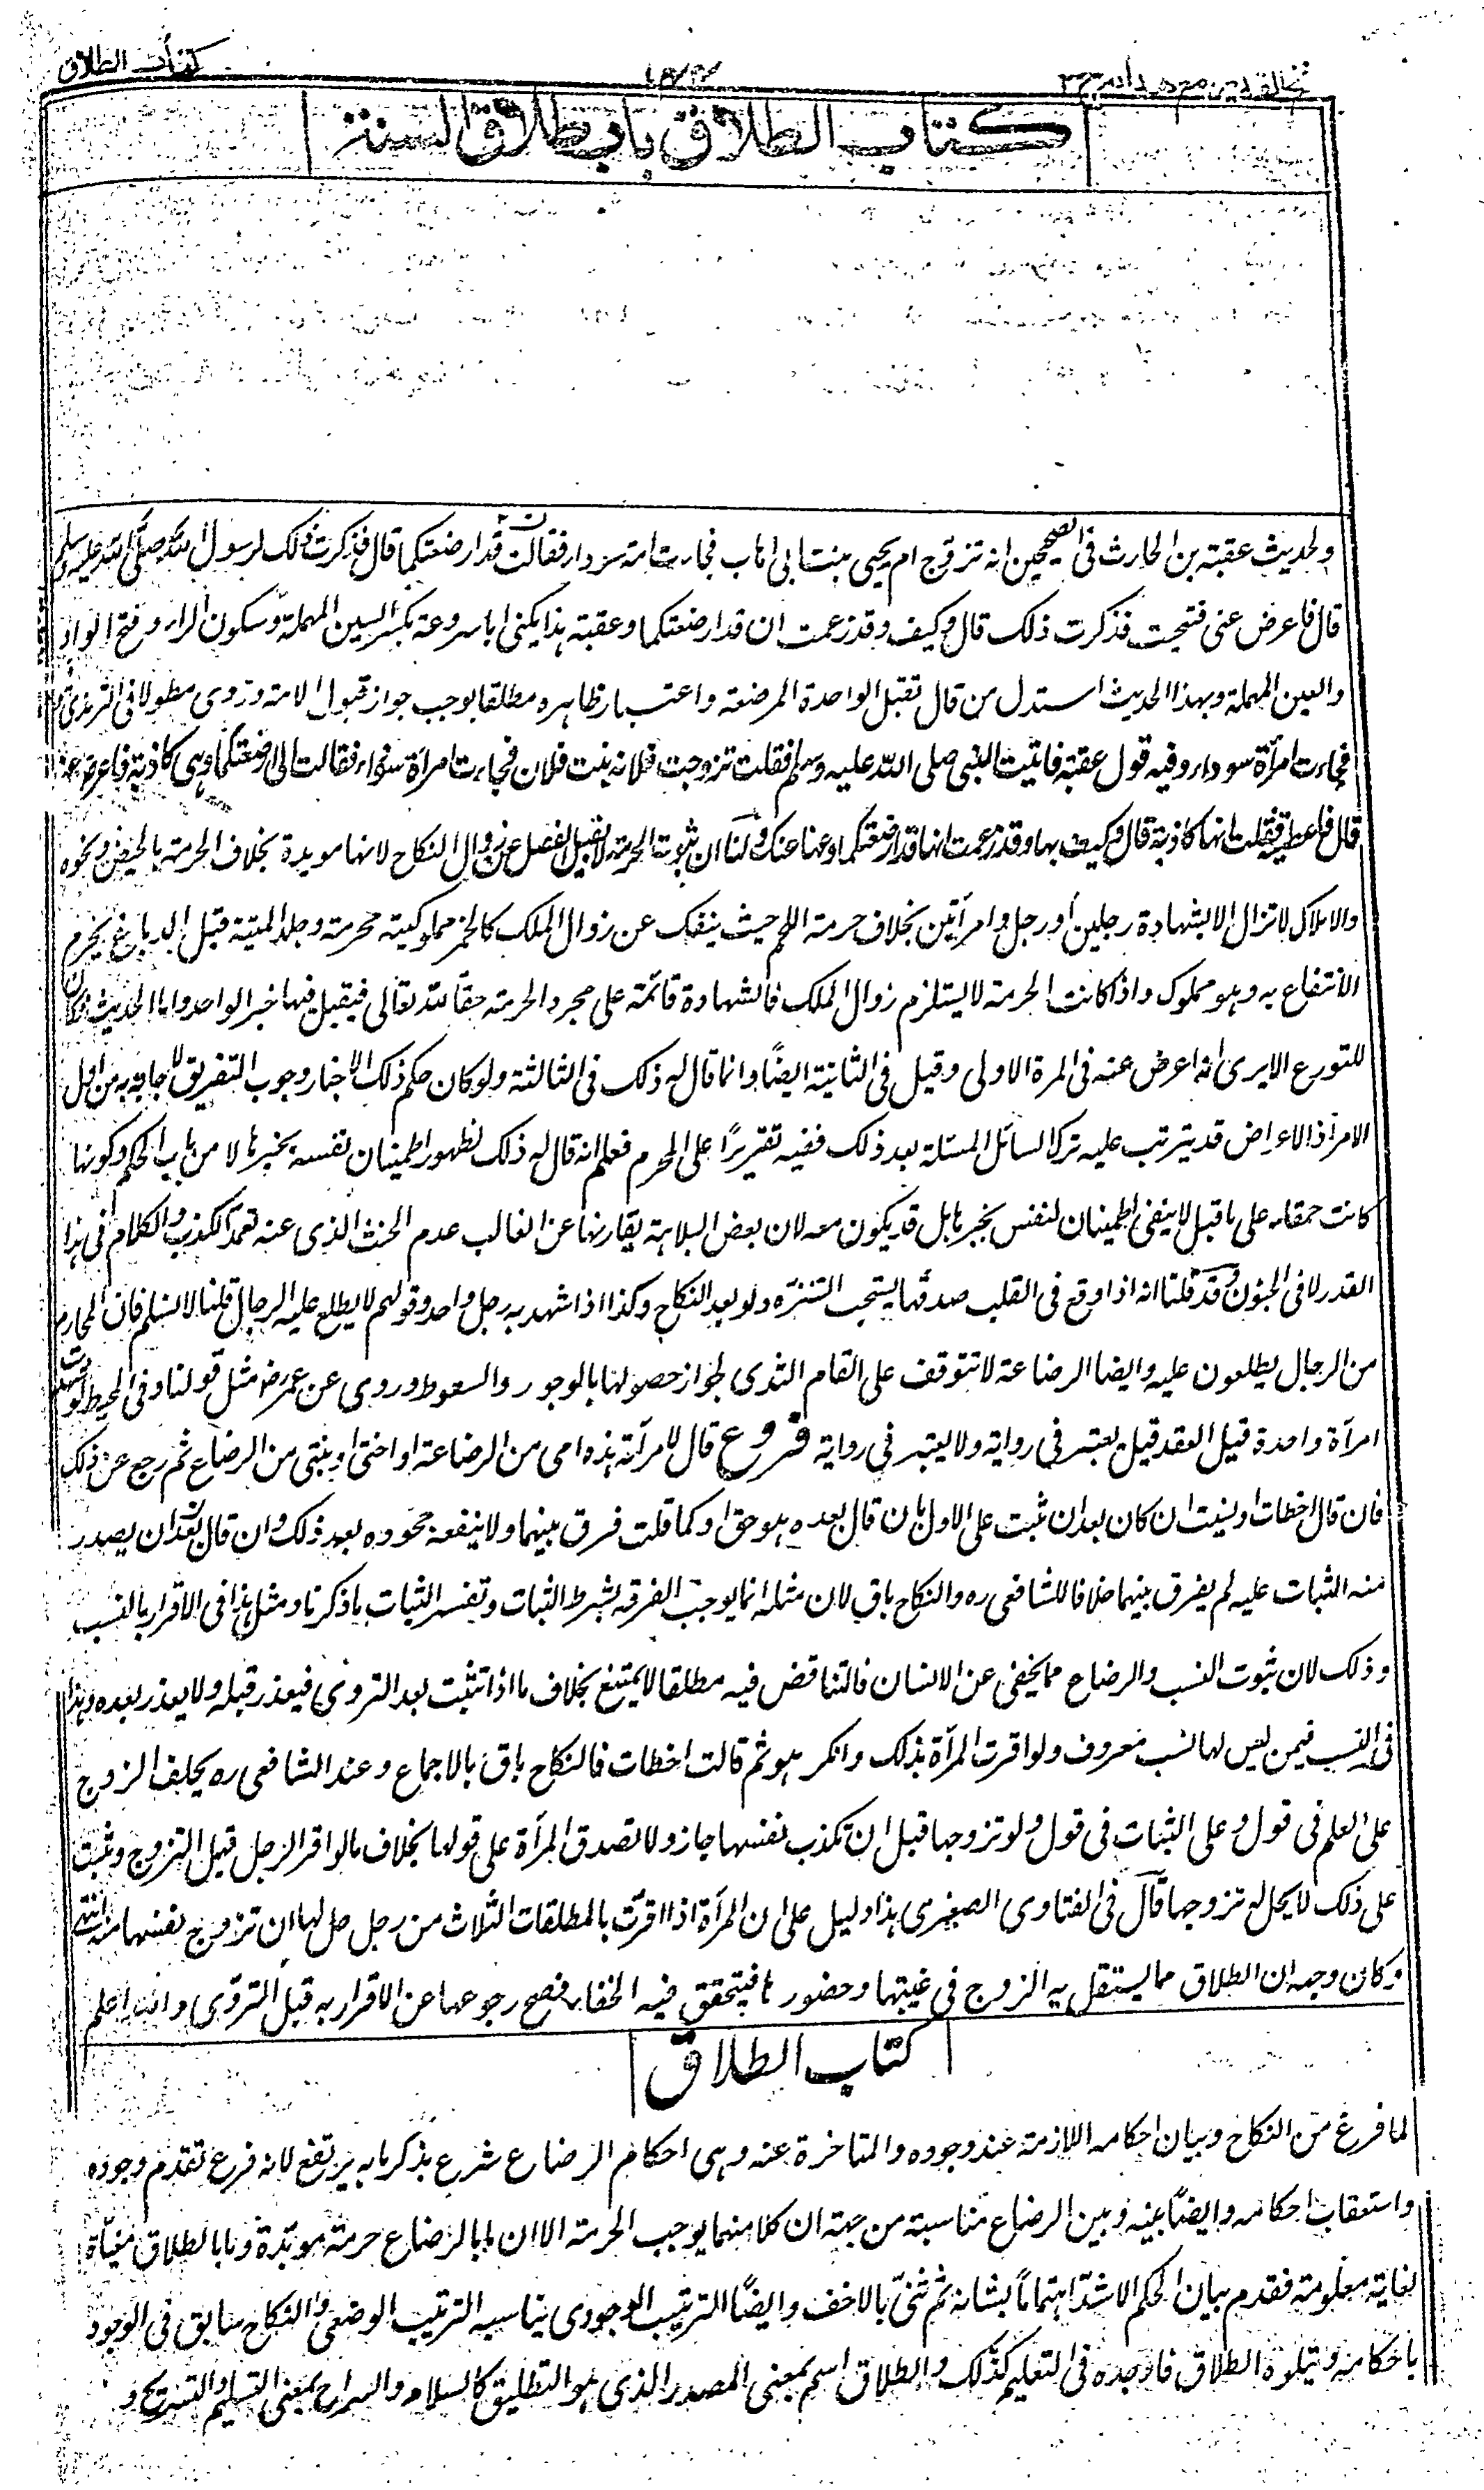 كتاب الطلاق
كتاب الطلاق باب طلاق السنة
ولحديث عقبة بن الحارث فى الصحيحين انه تزوج ام يحيى بنت ابى اهاب فجاءت امة سوداء فقالت قد ارضعتكما قال فذكرت ذلك لرسول الله صلى الله عليه وسلم
قال فاعرض عنى فتنحيت فذكرت ذلك قال وكيف وقد زعمت ان قد ارضعتكما وعقبة هذا يكنى ابا سروعة بكسر السين المهملة وسكون الراء وفتح الواو
والعين المهملة وبهذا الحديث استدل من قال تقبل الواحدة المرضعة واعتبار ظاهره مطلقا يوجب جواز قبول الامة وروى مطولا فى الترمذى
فجاءت امرأة سوداء وفيه قول عقبة فاتيت النبى صلى الله عليه وسلم فقلت تزوجت فلانة بنت فلان فجاءت امرأة سوداء فقالت انى ارضعتكما وهى كاذبة فاعرض عنى
قال فاعرض فقلت انها كاذبة قال وكيف بها وقد زعمت انها قد ارضعتكما دعها عنك ولنا ان ثبوت الحرمة لا يقبل الفصل عن زوال النكاح لانها موبدة بخلاف الحرمة بالحيض ونحوه
والاملاك لا تزال الا بشهادة رجلين أو رجل وامرأتين بخلاف حرمة اللحم حيث ينفك عن زوال الملك كالخمر مملوكية محرمة وجلد الميتة قبل الدباغ يحرم
الانتفاع به وهو مملوك واذا كانت الحرمة لا يستلزم زوال الملك فالشهادة قائمة على مجرد الحرمة حقا لله تعالى فيقبل فيها خبر الواحد واما الحديث فكان
للتورع الا يرى انه اعرض عنه فى المرة الاولى وقيل فى الثانية ايضًا وانما قال له ذلك فى الثالثة ولو كان حكم ذلك الاخبار وجوب التفريق لاجابه به من اول
الامر اذ الاعراض قد يترتب عليه ترك السائل المسئلة بعد ذلك ففيه تقريرًا على المحرم فعلم انه قال له ذلك لظهور اطمينان نفسه بخبرها لا من باب الحكم وكونها
كانت حمقاء على ما قيل لا ينفى اطمينان النفس بخبرها بل قد يكون معه لان بعض البلاهة يقارنها عن الغالب عدم الخبث الذى عنه تعمد الكذب والكلام فى هذا
القدر لا فى الجنون وقد قلنا انه اذا وقع فى القلب صدقها يستحب التنزه ولو بعد النكاح وكذا اذا شهد به رجل واحد وقولهم لا يطلع عليه الرجال قلنا لا نسلم فان المحارم
من الرجال يطلعون عليه وايضا الرضاعة لا تتوقف على القام الثدى لجواز حصولها بالوجور والسعوط وروى عن عمر رض مثل قولنا وفى المحيط لو شهدت
امرأة واحدة قبل العقد قيل يعتبر فى رواية ولا يعتبر فى رواية فروع قال لامرأته هذه امى من الرضاعة او اختى او بنتى من الرضاع ثم رجع عن ذلك
فان قال اخطات او نسيت ان كان بعد ان ثبت على الاول بان قال بعده هو حق او كما قلت فرق بينهما ولا ينفعه جحوده بعد ذلك وان قال قبل ان يصدر
منه الثبات عليه لم يفرق بينهما خلافا للشافعى ره والنكاح باق لان مثله انما يوجب الفرقة بشرط الثبات وتفسير الثبات ما ذكرنا ومثل هذا فى الاقرار بالنسب
وذلك لان ثبوت النسب والرضاع مما يخفى عن الانسان فالتناقض فيه مطلقا لا يمتنع بخلاف ما اذا تثبت بعد التروى فيعذر قبله ولا يعذر بعده وهذا
فى النسب فيمن ليس لها نسب معروف ولو اقرت المرأة بذلك وانكر هو ثم قالت اخطات فالنكاح باق بالاجماع وعند الشافعى ره يحلف الزوج
على العلم فى قول وعلى الثبات فى قول ولو تزوجها قبل ان تكذب نفسها جاز ولا تصدق المرأة على قولها بخلاف ما لو اقر الرجل قبل التزوج وثبت
على ذلك لا يحل له تزوجها قال فى الفتاوى الصغرى هذا دليل على ان المرأة اذا اقرت بالمطلقات الثلاث من رجل حل لها ان تزوج نفسها منه انتهى
وكان وجهه ان الطلاق مما يستقل به الزوج فى غيبتها وحضورها فيتحقق فيه الخفاء فصح رجوعها عن الاقرار به قبل التروى والله اعلم
كتاب الطلاق
لما فرغ من النكاح وبيان احكامه اللازمة عند وجوده والمتاخرة عنه وهى احكام الرضاع شرع بذكر ما به يرتفع لانه فرع تقدم وجوده
واستعقاب احكامه وايضًا بينه وبين الرضاع مناسبة من جهة ان كلا منهما يوجب الحرمة الا ان ما بالرضاع حرمة موبدة وما بالطلاق مغياة
لغاية معلومة فقدم بيان الحكم الاشد اهتمامًا بشانه ثم ثنى بالاخف وايضًا الترتيب الوجودى يناسبه الترتيب الوضعى والنكاح سابق فى الوجود
باحكامه ويتلوه الطلاق فاوجده فى التعليم كذلك والطلاق اسم بمعنى المصدر الذى هو التطليق كالسلام والسراح بمعنى التسليم والتسريح و